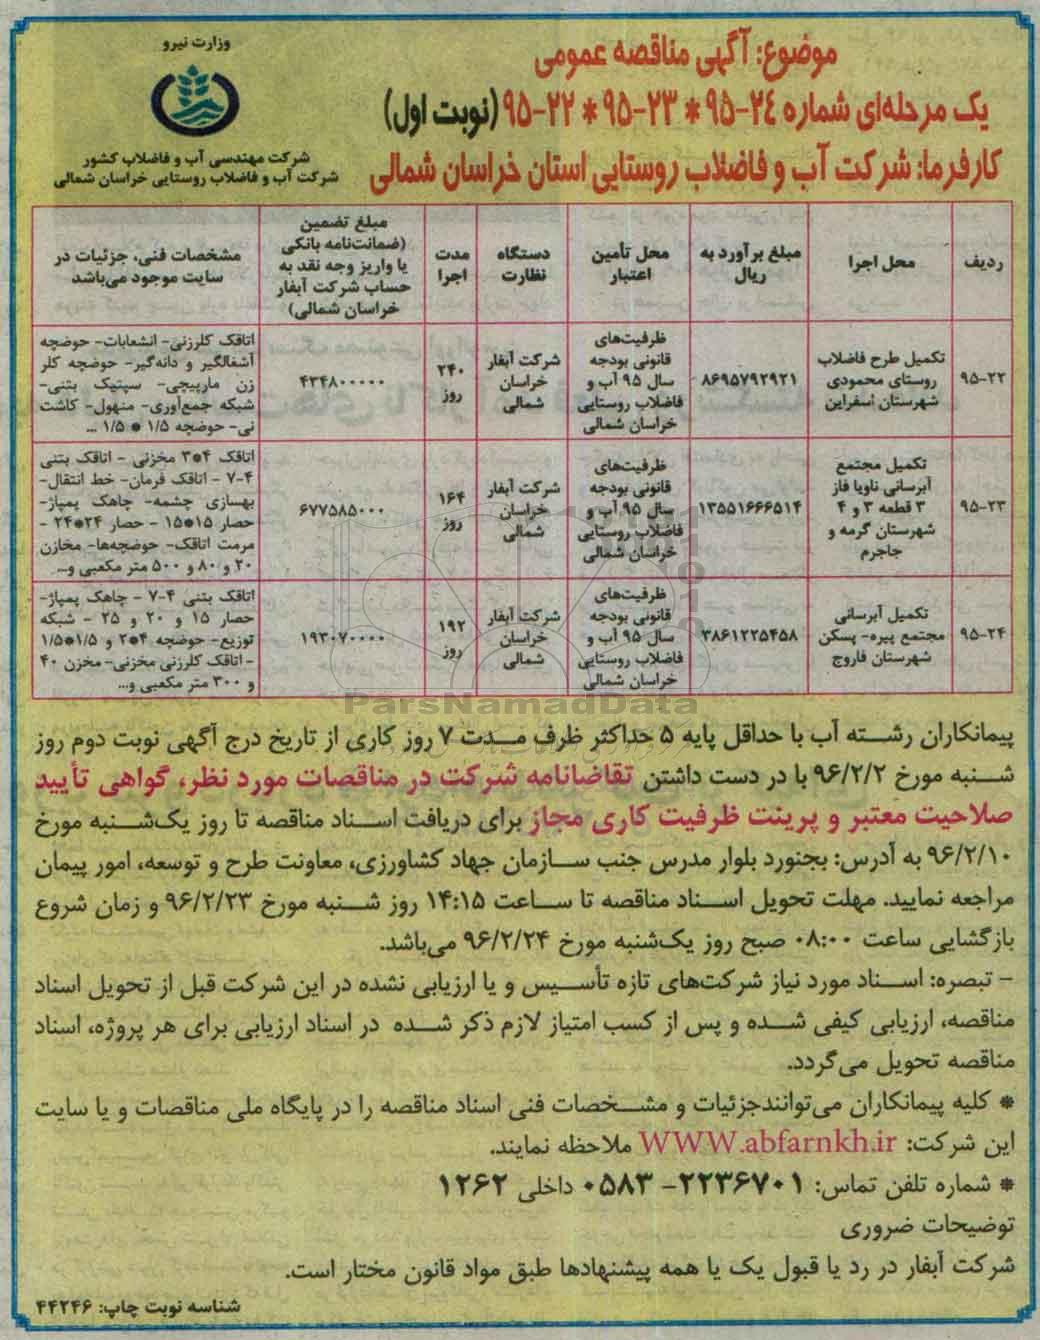 وزارت نیرو
شرکت مهندسی آب و فاضلاب کشور
شرکت آب و فاضلاب روستایی خراسان شمالی
موضوع: آگهی مناقصه عمومی
یک مرحله‌ای شماره ۲۴-۹۵ * ۲۳-۹۵ * ۲۲-۹۵ (نوبت اول)
کارفرما: شرکت آب و فاضلاب روستایی استان خراسان شمالی
ردیف
محل اجرا
مبلغ برآورد به
ریال
محل تأمین
اعتبار
دستگاه
نظارت
مدت
اجرا
مبلغ تضمین
(ضمانت‌نامه بانکی
یا واریز وجه نقد به
حساب شرکت آبفار
خراسان شمالی)
مشخصات فنی، جزئیات در
سایت موجود می‌باشد
۹۵-۲۲
تکمیل طرح فاضلاب
روستای محمودی
شهرستان اسفراین
۸۶۹۵۷۹۲۹۲۱
ظرفیت‌های
قانونی بودجه
سال ۹۵ آب و
فاضلاب روستایی
خراسان شمالی
شرکت آبفار
خراسان
شمالی
۲۴۰
روز
۴۳۴۸۰۰۰۰۰
اتاقک کلرزنی- انشعابات- حوضچه
آشغالگیر و دانه‌گیر- حوضچه کلر
زن مارپیچی- سپتیک بتنی-
شبکه جمع‌آوری- منهول- کاشت
نی- حوضچه ۱/۵ * ۱/۵ ...
۹۵-۲۳
تکمیل مجتمع
آبرسانی ناویا فاز
۳ قطعه ۳ و ۴
شهرستان گرمه و
جاجرم
۱۳۵۵۱۶۶۶۵۱۴
ظرفیت‌های
قانونی بودجه
سال ۹۵ آب و
فاضلاب روستایی
خراسان شمالی
شرکت آبفار
خراسان
شمالی
۱۶۴
روز
۶۷۷۵۸۵۰۰۰
اتاقک ۴*۳ مخزنی - اتاقک بتنی
۴-۷ - اتاقک فرمان- خط انتقال-
بهسازی چشمه- چاهک پمپاژ-
حصار ۱۵*۱۵ - حصار ۲۴*۲۴ -
مرمت اتاقک- حوضچه‌ها- مخازن
۲۰ و ۸۰ و ۵۰۰ متر مکعبی و...
۹۵-۲۴
تکمیل آبرسانی
مجتمع پیره- پسکن
شهرستان فاروج
۳۸۶۱۲۲۵۴۵۸
ظرفیت‌های
قانونی بودجه
سال ۹۵ آب و
فاضلاب روستایی
خراسان شمالی
شرکت آبفار
خراسان
شمالی
۱۹۲
روز
۱۹۳۰۷۰۰۰۰
اتاقک بتنی ۴-۷ - چاهک پمپاژ-
حصار ۱۵ و ۲۰ و ۲۵ - شبکه
توزیع- حوضچه ۴*۲ و ۱/۵*۱/۵
- اتاقک کلرزنی مخزنی- مخزن ۴۰
و ۳۰۰ متر مکعبی و...
ParsNamadData
پیمانکاران رشته آب با حداقل پایه ۵ حداکثر ظرف مدت ۷ روز کاری از تاریخ درج آگهی نوبت دوم روز
شنبه مورخ ۹۶/۲/۲ با در دست داشتن تقاضانامه شرکت در مناقصات مورد نظر، گواهی تأیید
صلاحیت معتبر و پرینت ظرفیت کاری مجاز برای دریافت اسناد مناقصه تا روز یک‌شنبه مورخ
۹۶/۲/۱۰ به آدرس: بجنورد بلوار مدرس جنب سازمان جهاد کشاورزی، معاونت طرح و توسعه، امور پیمان
مراجعه نمایید. مهلت تحویل اسناد مناقصه تا ساعت ۱۴:۱۵ روز شنبه مورخ ۹۶/۲/۲۳ و زمان شروع
بازگشایی ساعت ۰۸:۰۰ صبح روز یک‌شنبه مورخ ۹۶/۲/۲۴ می‌باشد.
- تبصره: اسناد مورد نیاز شرکت‌های تازه تأسیس و یا ارزیابی نشده در این شرکت قبل از تحویل اسناد
مناقصه، ارزیابی کیفی شده و پس از کسب امتیاز لازم ذکر شده در اسناد ارزیابی برای هر پروژه، اسناد
مناقصه تحویل می‌گردد.
* کلیه پیمانکاران می‌توانندجزئیات و مشخصات فنی اسناد مناقصه را در پایگاه ملی مناقصات و یا سایت
این شرکت: WWW.abfarnkh.ir ملاحظه نمایند.
* شماره تلفن تماس: ۲۲۳۶۷۰۱- ۰۵۸۳ داخلی ۱۲۶۲
توضیحات ضروری
شرکت آبفار در رد یا قبول یک یا همه پیشنهادها طبق مواد قانون مختار است.
شناسه نوبت چاپ: ۴۴۲۴۶